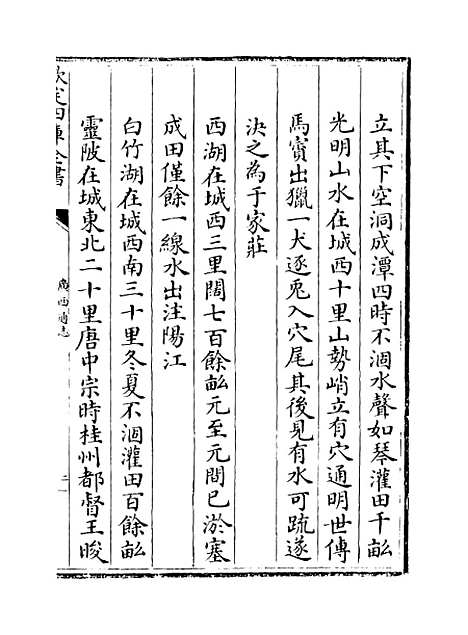 立其下空洞成潭四時不涸水聲如琴灌田千畝
光明山水在城西十里山勢峭立有穴通明世傳
馬賨出獵一犬逐兎入穴尾其後見有水可疏遂
決之為于家莊
西湖在城西三里闊七百餘畝元至元間已淤塞
成田僅餘一線水出注陽江
白竹湖在城西南三十里冬夏不涸灌田百餘畝
靈陂在城東北二十里唐中宗時桂州都督王晙
欽定四庫全書
廣西通志